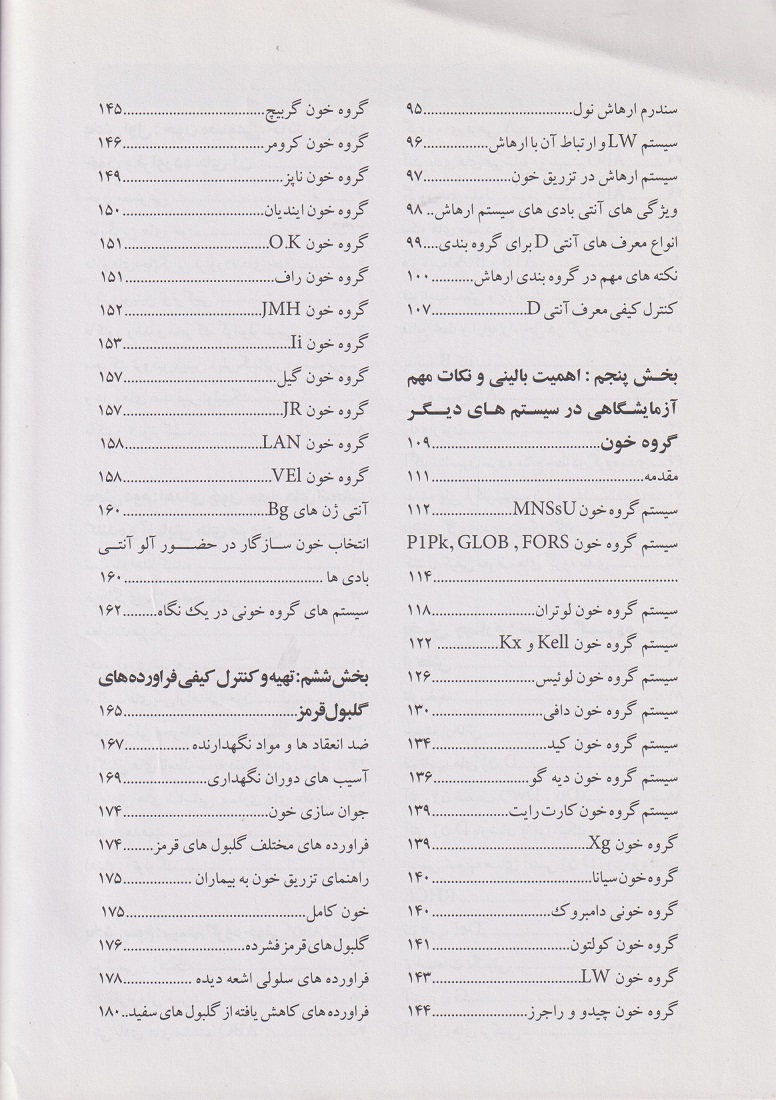 سندرم ارهاش نول..............................۹۵
سیستم LW و ارتباط آن با ارهاش..............۹۶
سیستم ارهاش در تزریق خون..................۹۷
ویژگی های آنتی بادی های سیستم ارهاش.. ۹۸
انواع معرف های آنتی D برای گروه بندی....۹۹
نکته های مهم در گروه بندی ارهاش...........۱۰۰
کنترل کیفی معرف آنتی D....................۱۰۷
بخش پنجم : اهمیت بالینی و نکات مهم
آزمایشگاهی در سیستم های دیگر
گروه خون..................................۱۰۹
مقدمه........................................۱۱۱
سیستم گروه خون MNSsU....................۱۱۲
سیستم گروه خون P1Pk, GLOB , FORS
................................................۱۱۴
سیستم گروه خون لوتران.....................۱۱۸
سیستم گروه خون Kell و Kx............... ۱۲۲
سیستم گروه خون لوئیس.....................۱۲۶
سیستم گروه خون دافی......................۱۳۰
سیستم گروه خون کید.......................۱۳۴
سیستم گروه خون دیه گو....................۱۳۶
سیستم گروه خون کارت رایت................۱۳۹
گروه خون Xg...............................۱۳۹
گروه خون سیانا..............................۱۴۰
گروه خونی دامبروک.........................۱۴۰
گروه خون کولتون............................۱۴۱
گروه خون LW..............................۱۴۳
گروه خون چیدو و راجرز.....................۱۴۴
گروه خون گربیچ.............................۱۴۵
گروه خون کرومر.............................۱۴۶
گروه خون ناپز...............................۱۴۹
گروه خون ایندیان............................۱۵۰
گروه خون O.K..............................۱۵۱
گروه خون راف...............................۱۵۱
گروه خون JMH.............................۱۵۲
گروه خون Ii................................۱۵۳
گروه خون گیل...............................۱۵۷
گروه خون JR...............................۱۵۷
گروه خون LAN.............................۱۵۸
گروه خون VEl..............................۱۵۸
آنتی ژن های Bg............................۱۶۰
انتخاب خون سازگار در حضور آلو آنتی
بادی ها .....................................۱۶۰
سیستم های گروه خونی در یک نگاه.........۱۶۲
بخش ششم: تهیه و کنترل کیفی فراورده های
گلبول قرمز..................................۱۶۵
ضد انعقاد ها و مواد نگهدارنده ................۱۶۷
آسیب های دوران نگهداری...................۱۶۹
جوان سازی خون............................۱۷۴
فراورده های مختلف گلبول های قرمز........۱۷۴
راهنمای تزریق خون به بیماران ..............۱۷۵
خون کامل...................................۱۷۵
گلبول های قرمز فشرده......................۱۷۶
فراورده های سلولی اشعه دیده ................۱۷۸
فراورده های کاهش یافته از گلبول های سفید..۱۸۰